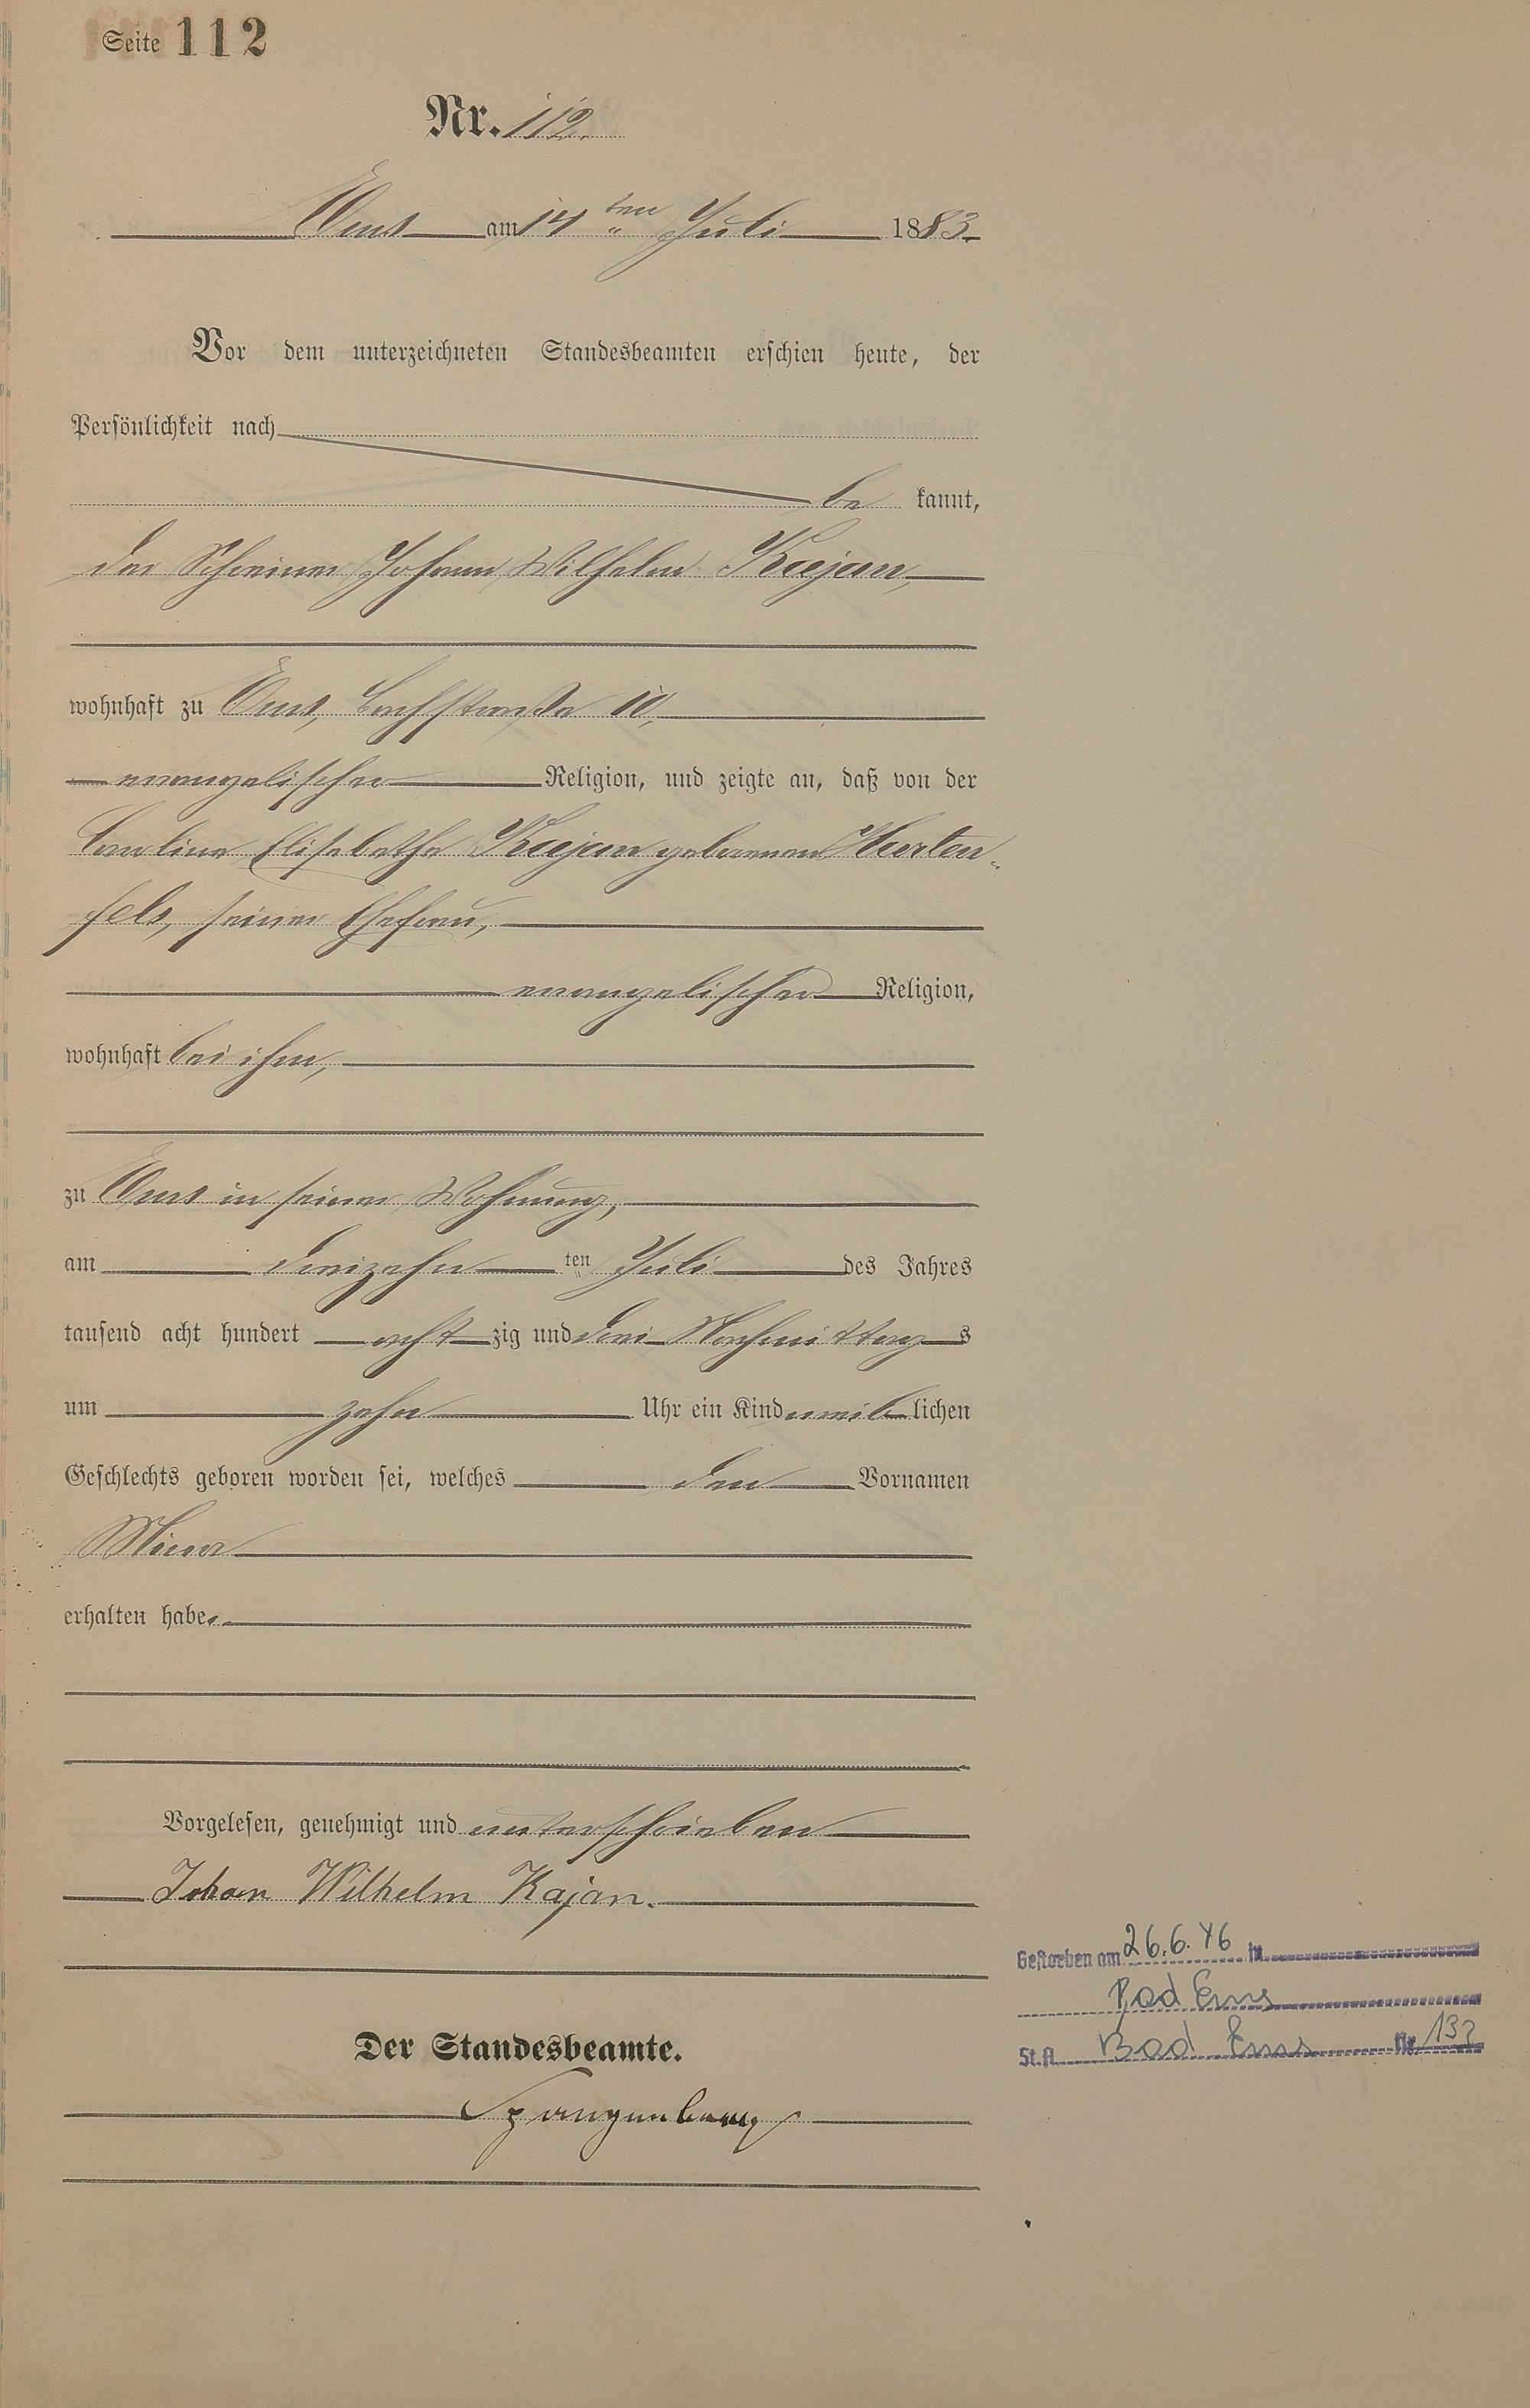 Seite 112
Nr. 112.
Ems am 14ten Juli 1883.
Vor dem unterzeichneten Standesbeamten erschien heute, der
Persönlichkeit nach
be kannt,
der Schreiner Johann Wilhelm Kajan,
wohnhaft zu Ems, Bachstraße 10,
evangelischer Religion, und zeigte an, daß von der
Caroline Elisabethe Kajan geborenen Harten-
fels, seiner Ehefrau,
evangelischer Religion,
wohnhaft bei ihm,
zu Ems in seiner Wohnung,
am dreizehn ten Juli des Jahres
tausend acht hundert acht zig und drei Nachmittag s
um zehn Uhr ein Kind weib lichen
Geschlechts geboren worden sei, welches den Vornamen
Mina
erhalten habe.
Vorgelesen, genehmigt und unterschrieben
Johan Wilhelm Kajan.
Der Standesbeamte.
Spangenberg
Gestorben am 26.6.46 in
Bad Ems
St.A. Bad Ems Nr.